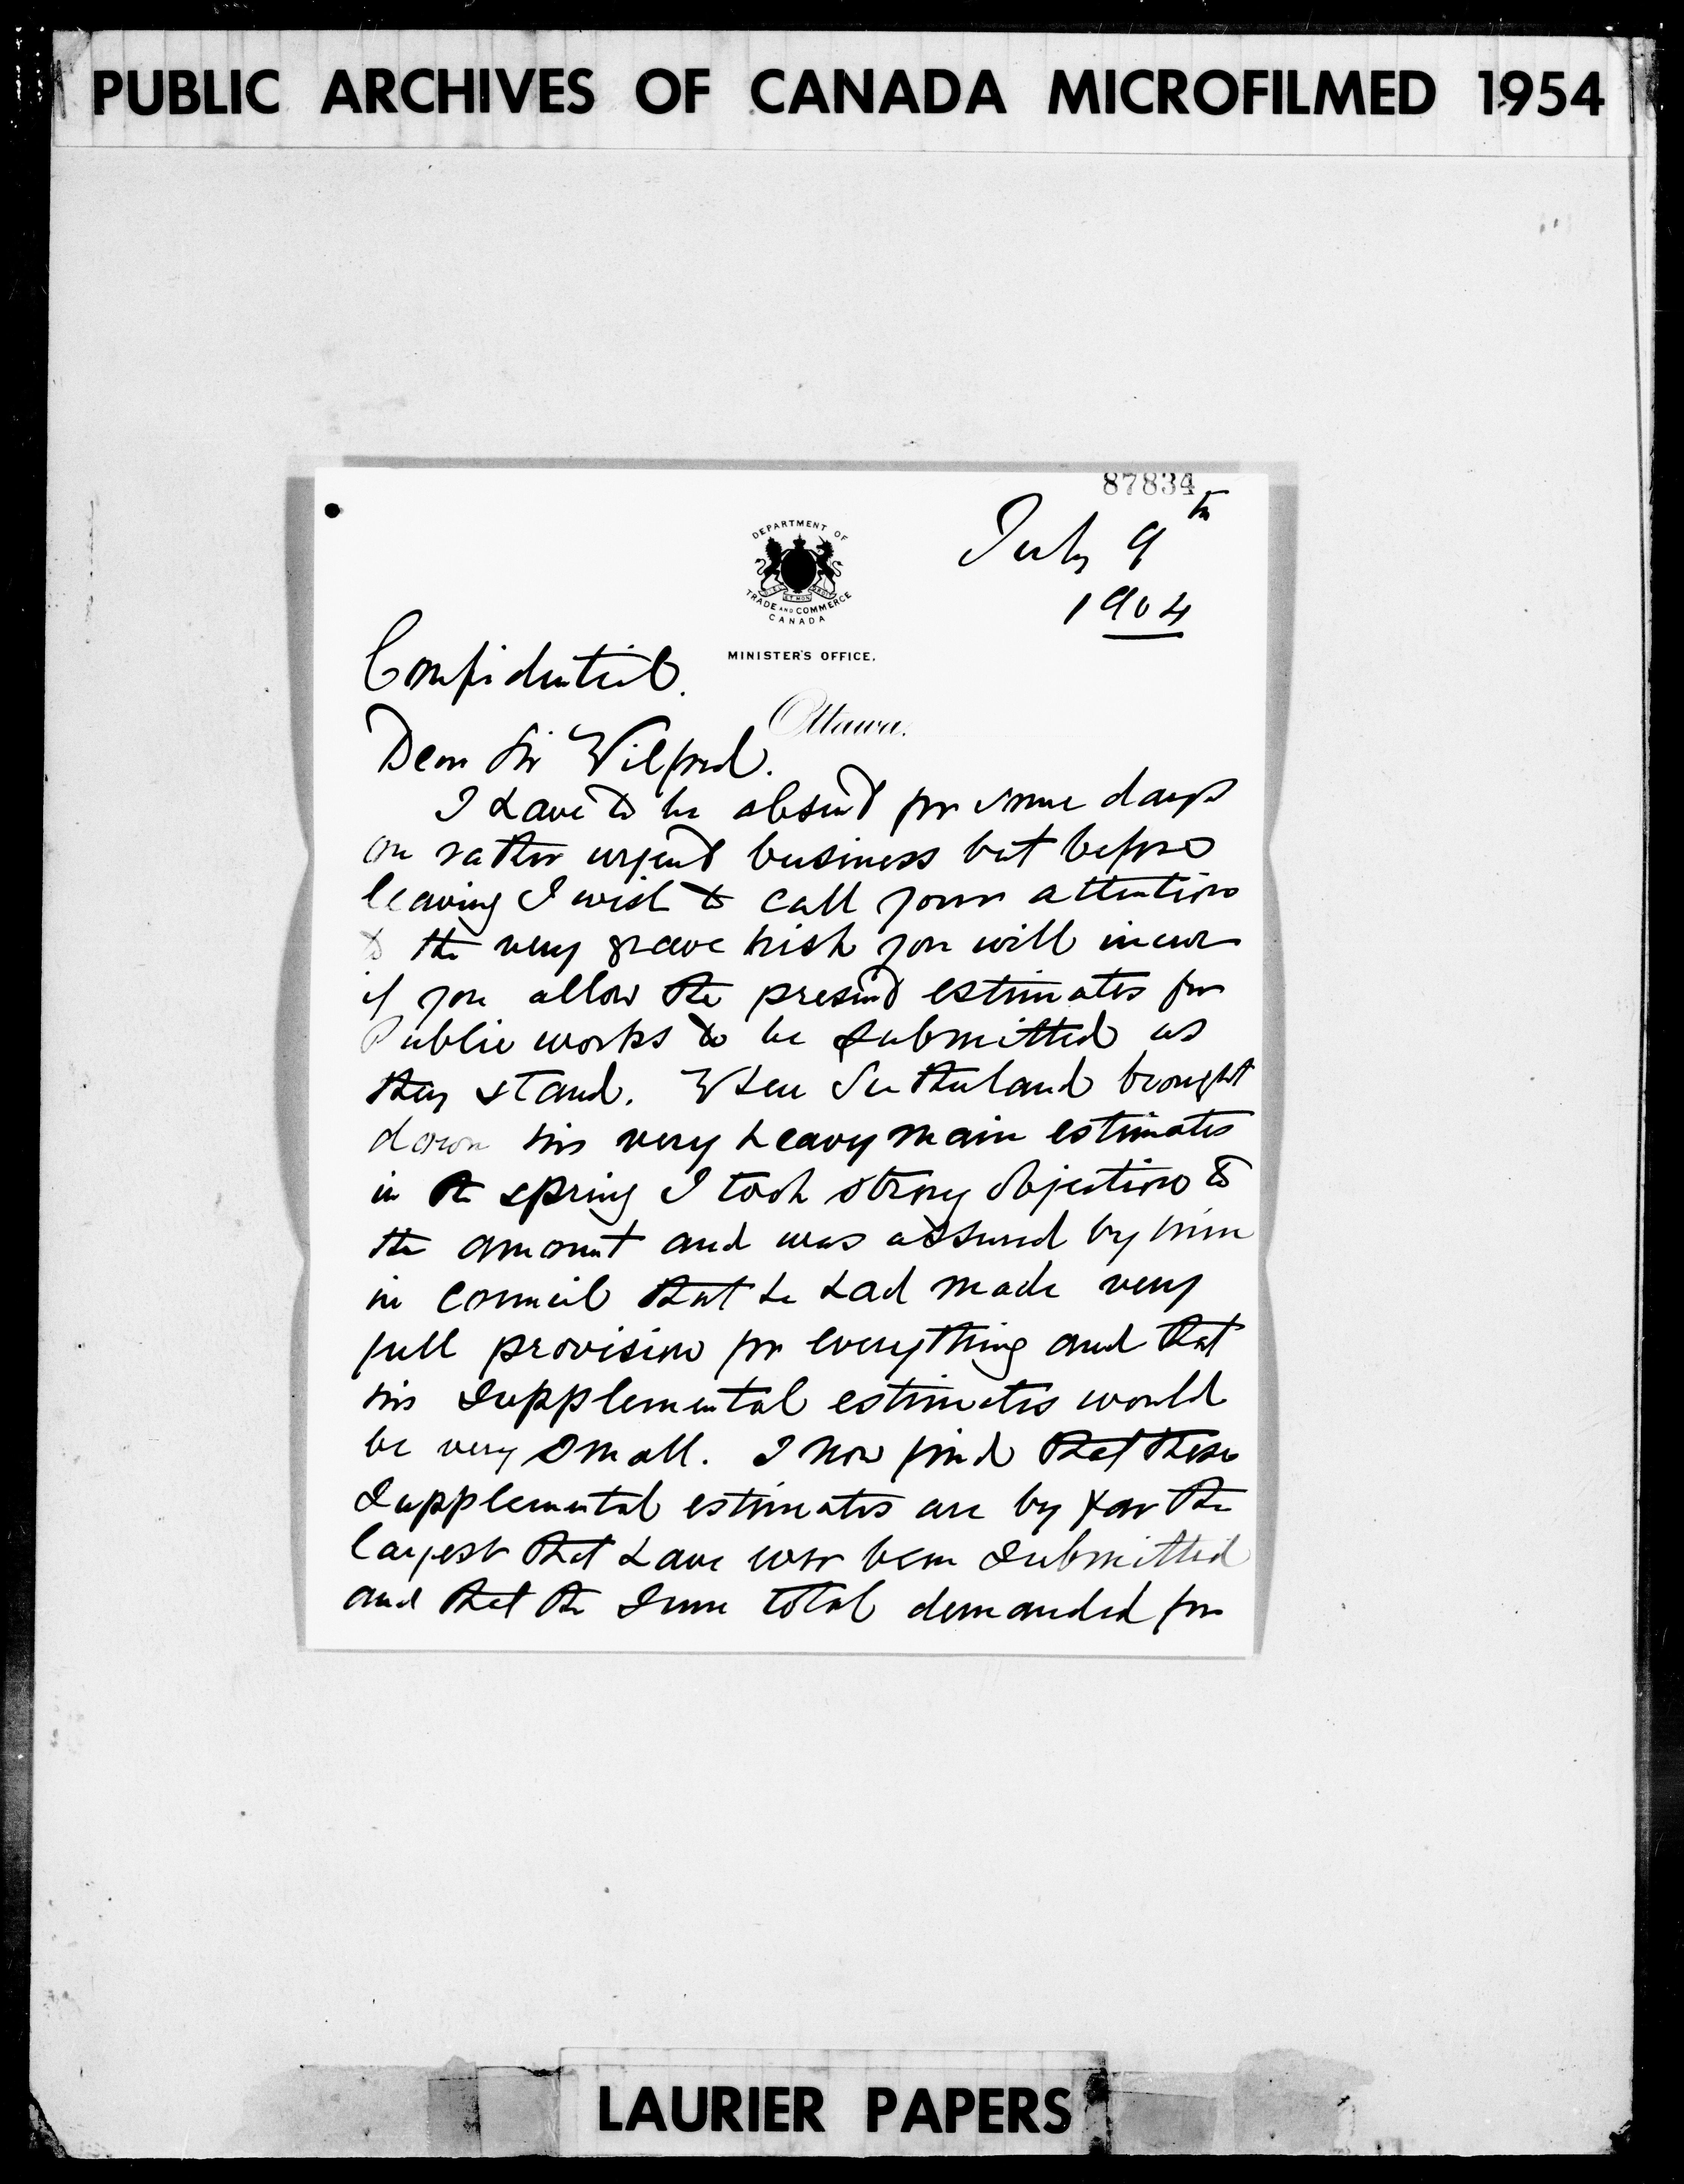 PUBLIC ARCHIVES OF CANADA MICROFILMED 1954
87834
July 9th
1904
DEPARTMENT OF
TRADE AND COMMERCE
CANADA
MINISTER'S OFFICE.
Confidential.
Ottawa.
Dear Sir Wilfred.
I have to be absent for some days
on rather urgent business but before
leaving I wish to call your attention
to the very grave risk you will incur
if you allow the present estimates for
Public works to be submitted as
they stand. When Sutherland brought
down his very heavy main estimates
in the spring I took strong objection to
the amount and was assured by him
in Council that he had made very
full provision for everything and that
his supplemental estimates would
be very small. I now find that these
supplemental estimates are by far the
largest that have ever been submitted
and that the sum total demanded for
LAURIER PAPERS